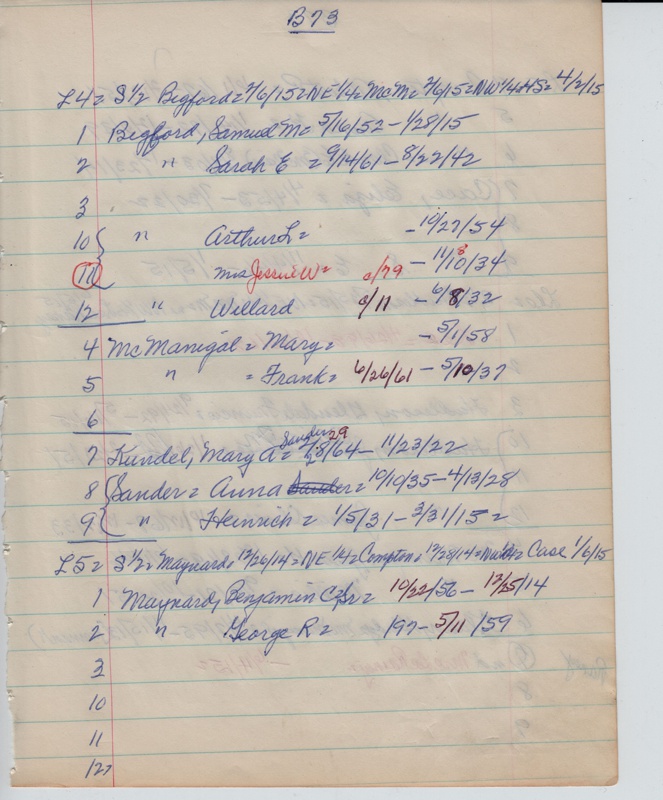 B73
L4 = S 1/2 Begford = 2/6/15 = NE 1/4 = McM = 2/6/15 = NW 1/4 = 4/2/15
1 Begford, Samuel M = 5/16/52 - 1/28/15
2 " Sarah E = 9/14/61 - 8/22/42
3
10 " Arthur L = - 10/27/54
11 Mrs Jessie W = c/79 - 11/10/34
12 " Willard c/11 - 6/8/32
4 McManigal = Mary = - 5/1/58
5 " = Frank = 6/26/61 - 5/10/37
6
Sander 29
7 Kundel, Mary A = 2/8/64 - 11/23/22
8 Sander = Anna Sander = 10/10/35 - 4/13/28
9 " Heinrich = 1/5/31 - 3/31/15 =
L5 = S 1/2 = Maynard = 12/26/14 = NE 1/4 = Compton = 12/28/14 = Case 1/6/15
1 Maynard, Benjamin C, Sr = 10/22/56 - 12/25/14
2 " George R = 197 - 5/11/59
3
10
11
12